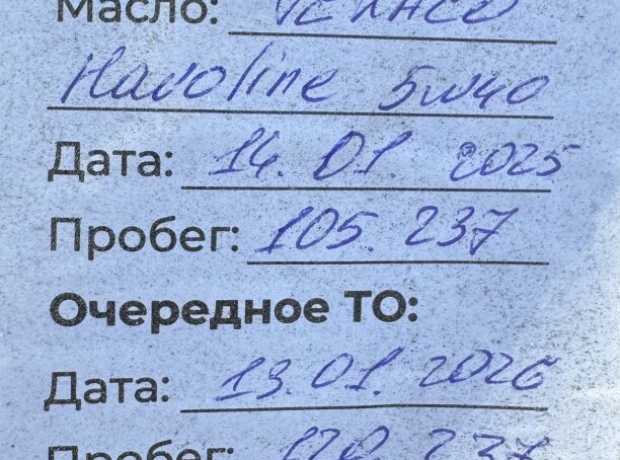 Масло: TEXACO
Havoline 5w40
Дата: 14.01.2025
Пробег: 105.237
Очередное ТО:
Дата: 13.01.2026
Пробег: 120.237